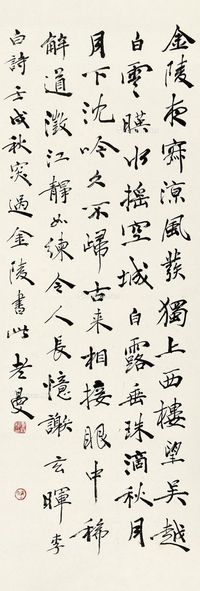 金陵夜寂涼風發獨上西樓望吳越
白雲暎水搖空城白露垂珠滴秋月
月下沈吟久不歸古来相接眼中稀
解道澂江靜如練令人長憶謝玄暉李
白詩壬戌秋過金陵書此老曼